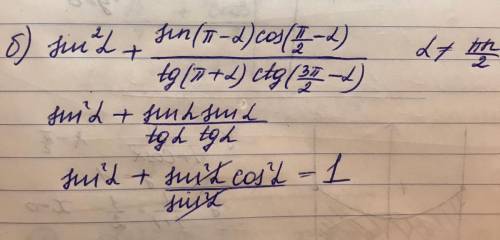 б) sin²α + sin(π-α)cos(π/2-α) / tg(π+α) ctg(3π/2-α) α ≠ πn/2
sin²α + sinα sinα / tgα tgα
sin²α + sin²α cos²α / sin²α = 1